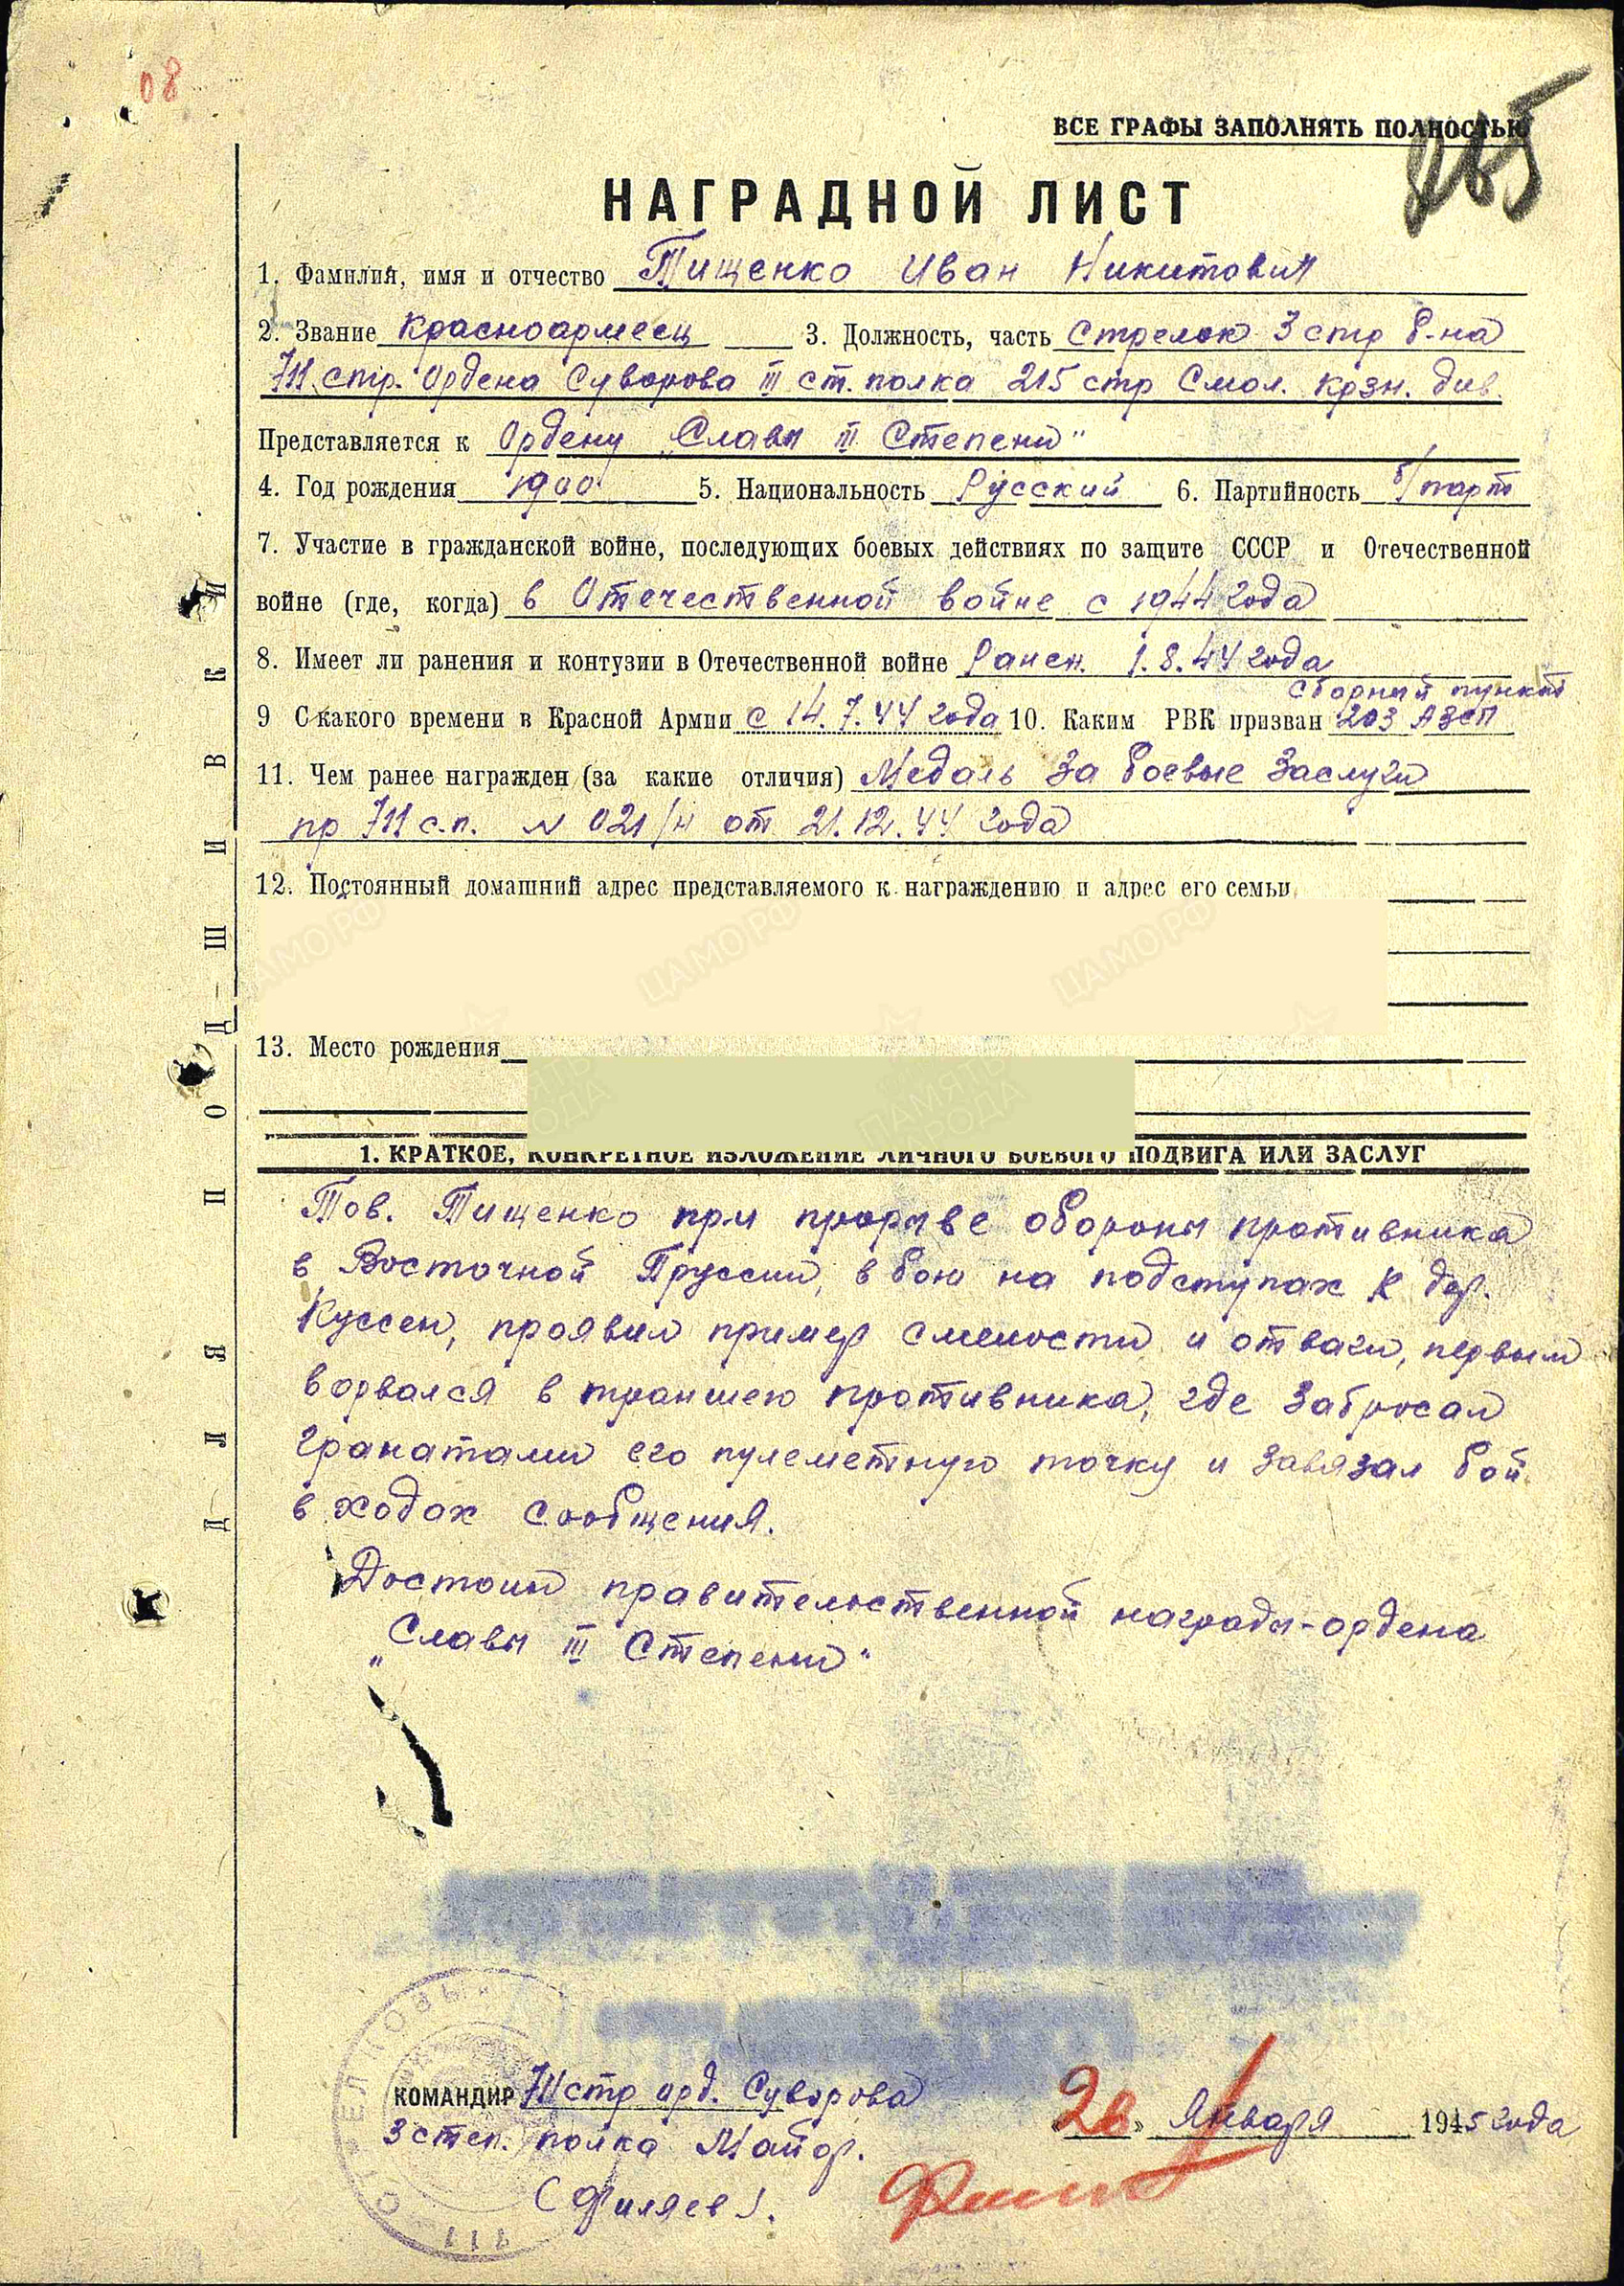 08
ВСЕ ГРАФЫ ЗАПОЛНЯТЬ ПОЛНОСТЬЮ
НАГРАДНОЙ ЛИСТ
1. Фамилия, имя и отчество Тищенко Иван Никитович
2. Звание Красноармеец 3. Должность, часть Стрелок 3 стр б-на
711 стр. Ордена Суворова III ст. полка 215 стр Смол. крзн. див.
Представляется к Ордену „Славы III Степени"
4. Год рождения 1900 5. Национальность Русский 6. Партийность б/парт
7. Участие в гражданской войне, последующих боевых действиях по защите СССР и Отечественной
войне (где, когда) в Отечественной войне с 1944 года
8. Имеет ли ранения и контузии в Отечественной войне Ранен. 1.8.44 года
сборный пункт
9 С какого времени в Красной Армии с 14.7.44 года 10. Каким РВК призван 203 АЗСП
11. Чем ранее награжден (за какие отличия) Медаль За боевые Заслуги
пр 711 с.п. N 021/н от 21.12.44 года
12. Постоянный домашний адрес представляемого к награждению и адрес его семьи
13. Место рождения
1. КРАТКОЕ, КОНКРЕТНОЕ ИЗЛОЖЕНИЕ ЛИЧНОГО БОЕВОГО ПОДВИГА ИЛИ ЗАСЛУГ
Тов. Тищенко при прорыве обороны противника
в Восточной Пруссии, в бою на подступах к дер.
Куссен, проявил пример смелости и отваги, первым
ворвался в траншею противника, где забросал
гранатами его пулеметную точку и завязал бой
в ходах сообщения.
Достоин правительственной награды-ордена
„Славы III Степени"
КОМАНДИР 711 стр орд. Суворова
3 степ. полка Майор.
(Филяев).
«26» Января 1945 года
ДЛЯ ПОДШИВКИ
ЦАМО РФ ЦАМО РФ ЦАМО РФ
ПАМЯТЬ